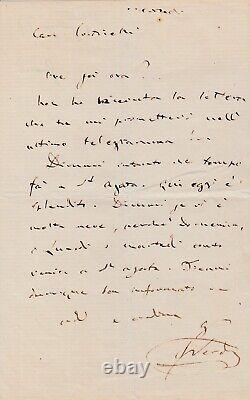 Caro Corticelli
Ove sei ora?
Non ho ricevuta la lettera
che tu mi promettevi nell'
ultimo telegramma!
Dimmi intanto che tempo
fa a St Agata. Qui oggi è
splendido. Dimmi se vi è
molta neve, perchè domenica,
o lunedì o martedì conto
venire a St Agata. Tienmi
dunque ben informato
addio e credimi
G Verdi